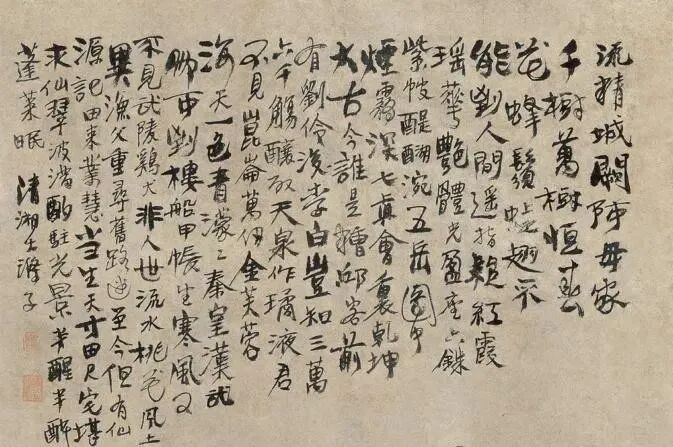 流精城闕阿母家
千樹萬樹恒春
花蜂鬚翅不
能到人間遥指疑紅霞
瑶華艷體光盈座六銖
紫帔醍醐浣五岳圖中
煙霧深七真會裏乾坤
大古今誰是糟邱客前
有劉伶後李白豈知三萬
六千觴釀取天泉作璚液君
不見崑崙萬仞金芙蓉
海天一色青濛々秦皇漢武
到樓船甲帳生寒風又
不見武陵鷄犬非人世流水桃花風土
異漁父重尋舊路迷至今但有仙
源記由来業慧當生天寸田尺宅堪
求仙翠波滿酌駐光景半醒半醉
蓬萊眠 清湘大滌子